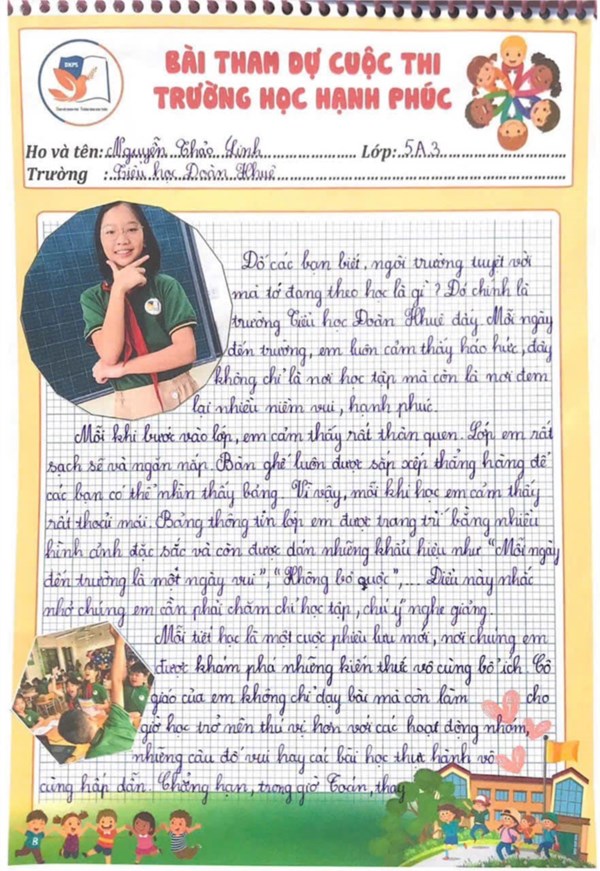 BÀI THAM DỰ CUỘC THI
TRƯỜNG HỌC HẠNH PHÚC
Họ và tên: Nguyễn Thảo Linh Lớp: 5A3
Trường : Tiểu học Đoàn Khuê
Đố các bạn biết, ngôi trường tuyệt vời
mà tớ đang theo học là gì? Đó chính là
trường Tiểu học Đoàn Khuê đấy. Mỗi ngày
đến trường, em luôn cảm thấy háo hức, đây
không chỉ là nơi học tập mà còn là nơi đem
lại nhiều niềm vui, hạnh phúc.
Mỗi khi bước vào lớp, em cảm thấy rất thân quen. Lớp em rất
sạch sẽ và ngăn nắp. Bàn ghế luôn được sắp xếp thẳng hàng để
các bạn có thể nhìn thấy bảng. Vì vậy, mỗi khi học em cảm thấy
rất thoải mái. Bảng thông tin lớp em được trang trí bằng nhiều
hình ảnh đặc sắc và còn được dán những khẩu hiệu như "Mỗi ngày
đến trường là một ngày vui", "Không bỏ cuộc",... Điều này nhắc
nhở chúng em cần phải chăm chỉ học tập, chú ý nghe giảng.
Mỗi tiết học là một cuộc phiêu lưu mới, nơi chúng em
được khám phá những kiến thức vô cùng bổ ích. Cô
giáo của em không chỉ dạy bài mà còn làm cho
giờ học trở nên thú vị hơn với các hoạt động nhóm,
những câu đố vui hay các bài học thực hành vô
cùng hấp dẫn. Chẳng hạn, trong giờ Toán, thay